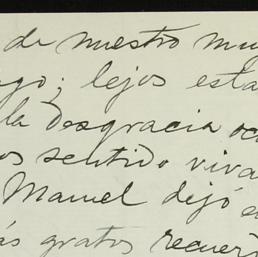 de nuestro mu
go; lejos esta
la desgracia oc
os sentido viva
Manuel dejó e
ás gratos recuer